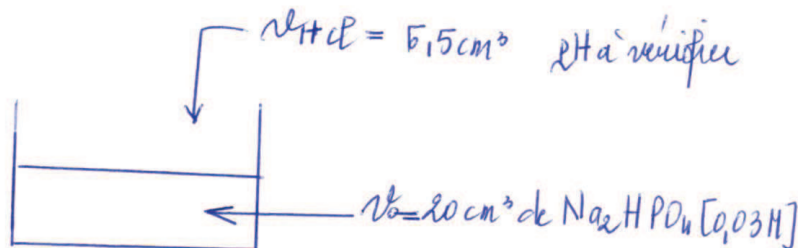 VHCl = 5,5cm³ pH à vérifier
V₀=20 cm³ de Na₂HPO₄ [0,03M]